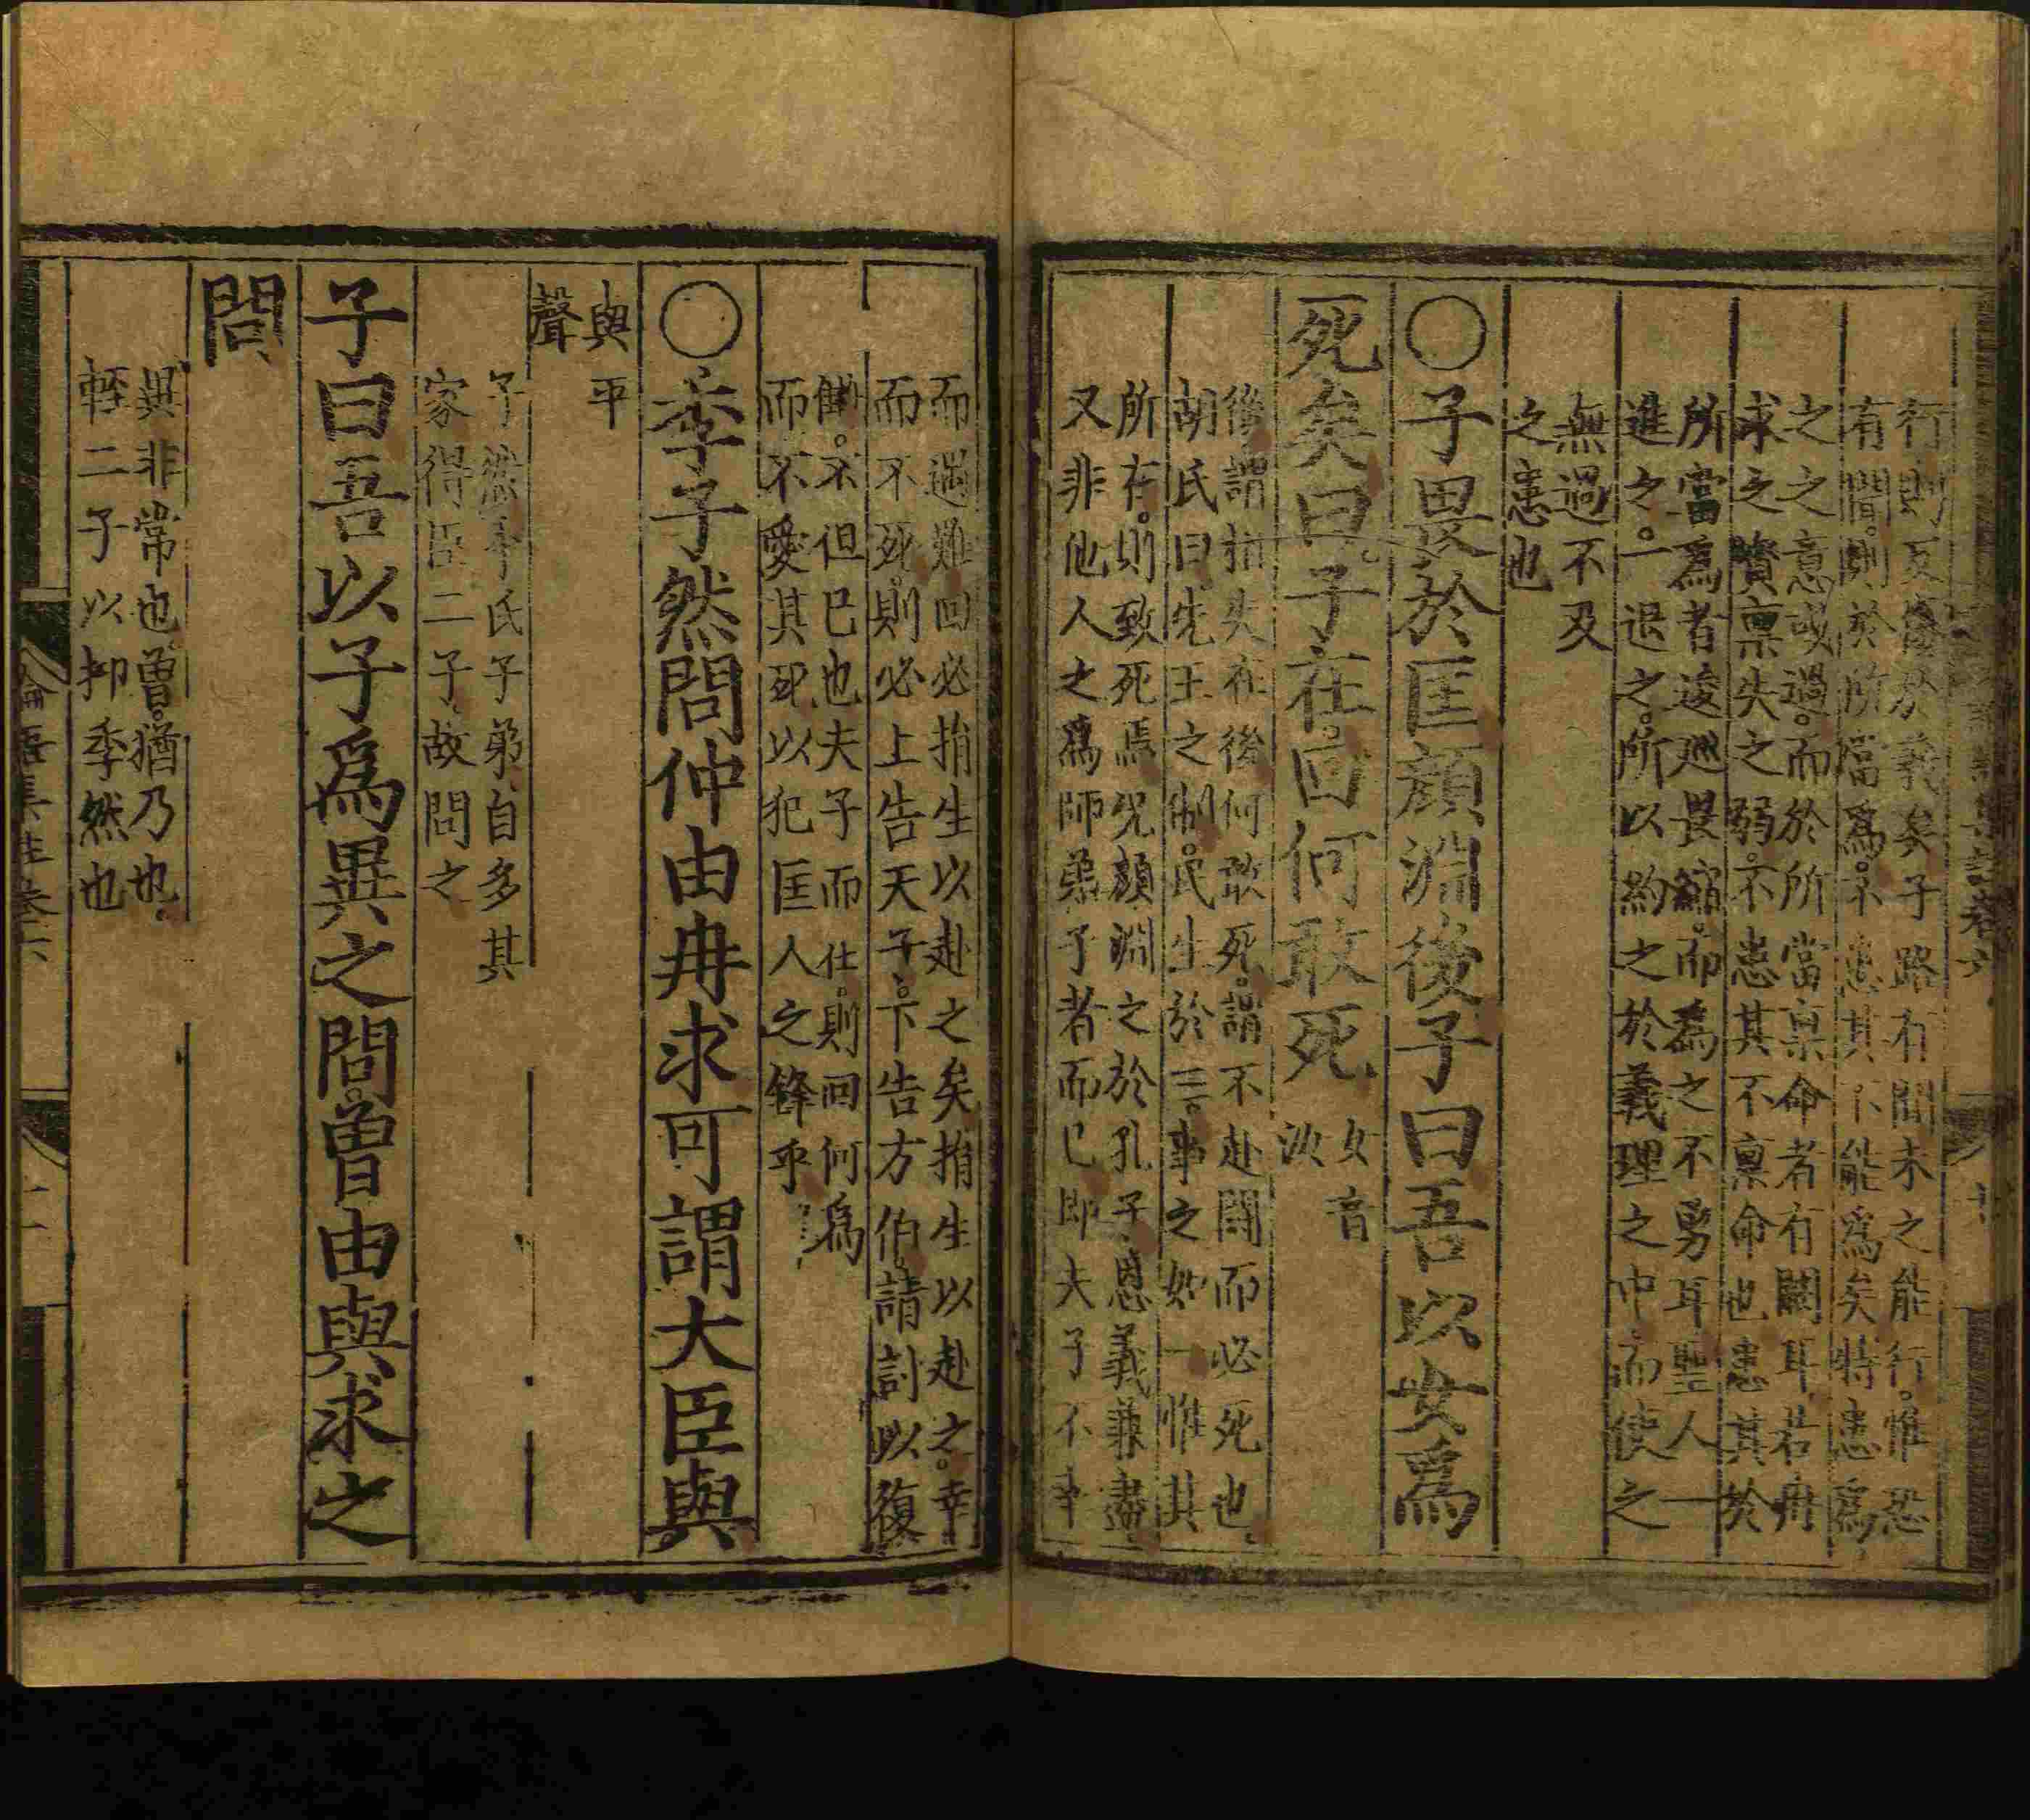 行則反傷於義矣子路有聞未之能行。惟恐
有聞。則於所當爲。不患其不能爲矣特患爲
之之意或過。而於所當稟命者有闕耳若冉
求之資稟失之弱。不患其不稟命也患其於
所當爲者逡巡畏縮。而為之不勇耳聖人一
進之。一退之。所以約之於義理之中。而使之
無過不及
之患也
○子畏於匡顔淵後子曰吾以女爲
死矣曰。子在。回何敢死
女音
汝
後謂相失在後何敢死。謂不赴鬪而必死也。
胡氏曰先王之制。民生於三。事之如一惟其
所在。則致死焉况顔淵之於孔子恩義兼盡
又非他人之爲師弟子者而已即夫子不幸
而遇難回必捐生以赴之矣捐生以赴之。幸
而不死。則必上告天子。下告方伯。請討以復
讎。不但已也夫子而在。則回何爲
而不愛其死以犯匡人之鋒乎
○季子然問仲由冉求可謂大臣與
與平
聲
子然季氏子弟自多其
家得臣二子。故問之
子曰吾以子爲異之問。曾由與求之
問
異非常也。曾。猶乃也。
輕二子以抑季然也
論語集註卷六
十一